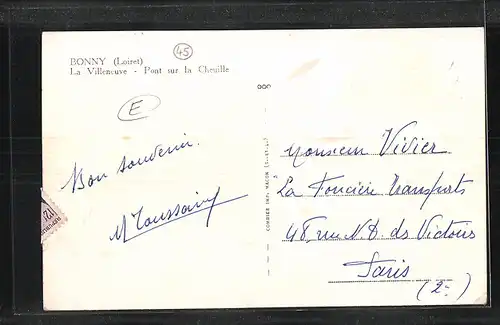 BONNY (Loiret)
La Villeneuve - Pont sur la Cheuille
45
E
Bon souvenir.
M Toussaint
COMBIER IMP. MACON
Monsieur Vivier
La Foncière Transports
48, rue N.D. des Victoires
Paris
(2e)